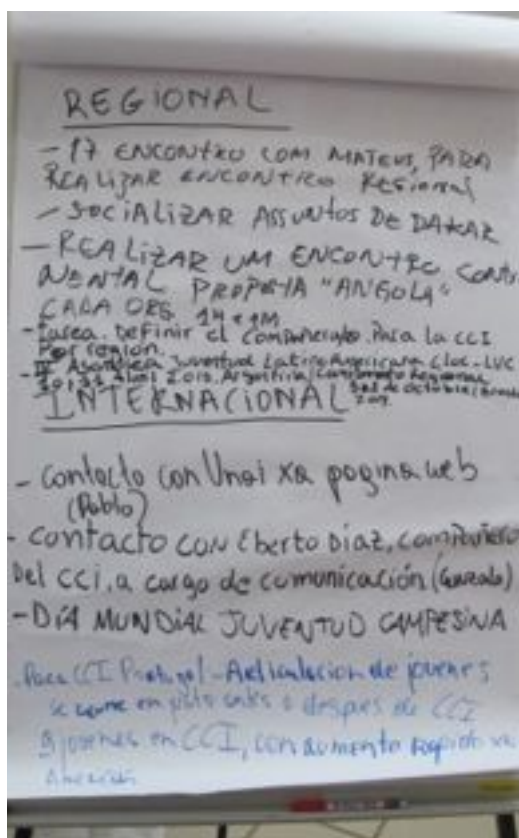 REGIONAL
- 17 ENCONTRO COM MATEUS, PARA
REALIZAR ENCONTRO REGIONAL
- SOCIALIZAR ASSUNTOS DE DAKAR
- REALIZAR UM ENCONTRO CONTI
NENTAL PROPOSTA "ANGOLA"
CADA ORG. 1H e 1M
- tarea. Definir el compañero/a Para la CCI
Por region.
- Asamblea Juventud LatinoAmericana Cloc-LVC
2010. Argentina
INTERNACIONAL
- Contacto con Unai xa pagina web
(Pablo)
- Contacto con Eberto Diaz, compañero
Del CCI, a cargo de comunicación (Gonzalo)
- DÍA MUNDIAL JUVENTUD CAMPESINA
- Para CCI Portugal - Articulacion de jovenes
se antes o despues de CCI
jovenes en CCI, con aumento